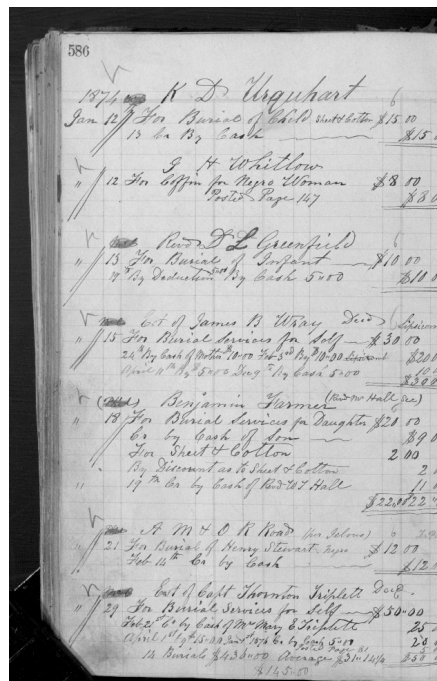 586
1874 K D Urquhart
Jan 12 For Burial of Child Shirt & Cotton $15 00
13 Cr By Cash $15
G H Whitlow
" 12 For Coffin for Negro Woman $8 00
Posted Page 147 $8 0
Revd D L Greenfield
" 13 For Burial of Infant $10 00
By Deduction 5"00 By Cash 5"00 $10 0
Est of James B Wray Decd
" 15 For Burial Services for Self $30 00
24th By Cash of Mother 10"00 Feb 3rd By 10"00 $20 0
April 11th By 5"00 By Cash 5"00 10 0
$30 0
Benjamin Farmer
" 18 For Burial Services for Daughter $20 00
Cr by Cash of Son $9 0
For Shirt & Cotton 2 00
By Discount as to Shirt & Cotton 2
" 19th Cr by Cash of Revd W T Hall 11 0
$22,00 22 "
A M & O R Road
" 21 For Burial of Henry Stewart negro $12 00
Feb 14th Cr by Cash $12
Est of Capt Thornton Triplett Decd
" 29 For Burial Services for Self $50"00
Feb 21st Cr by Cash of Mrs Mary E Triplette 25
April 1st 15"00 1876 Cr by Cash 5"00 20
Posted Page 5
14 Burials $430"00 Average $31"14¼ $50
$145"00